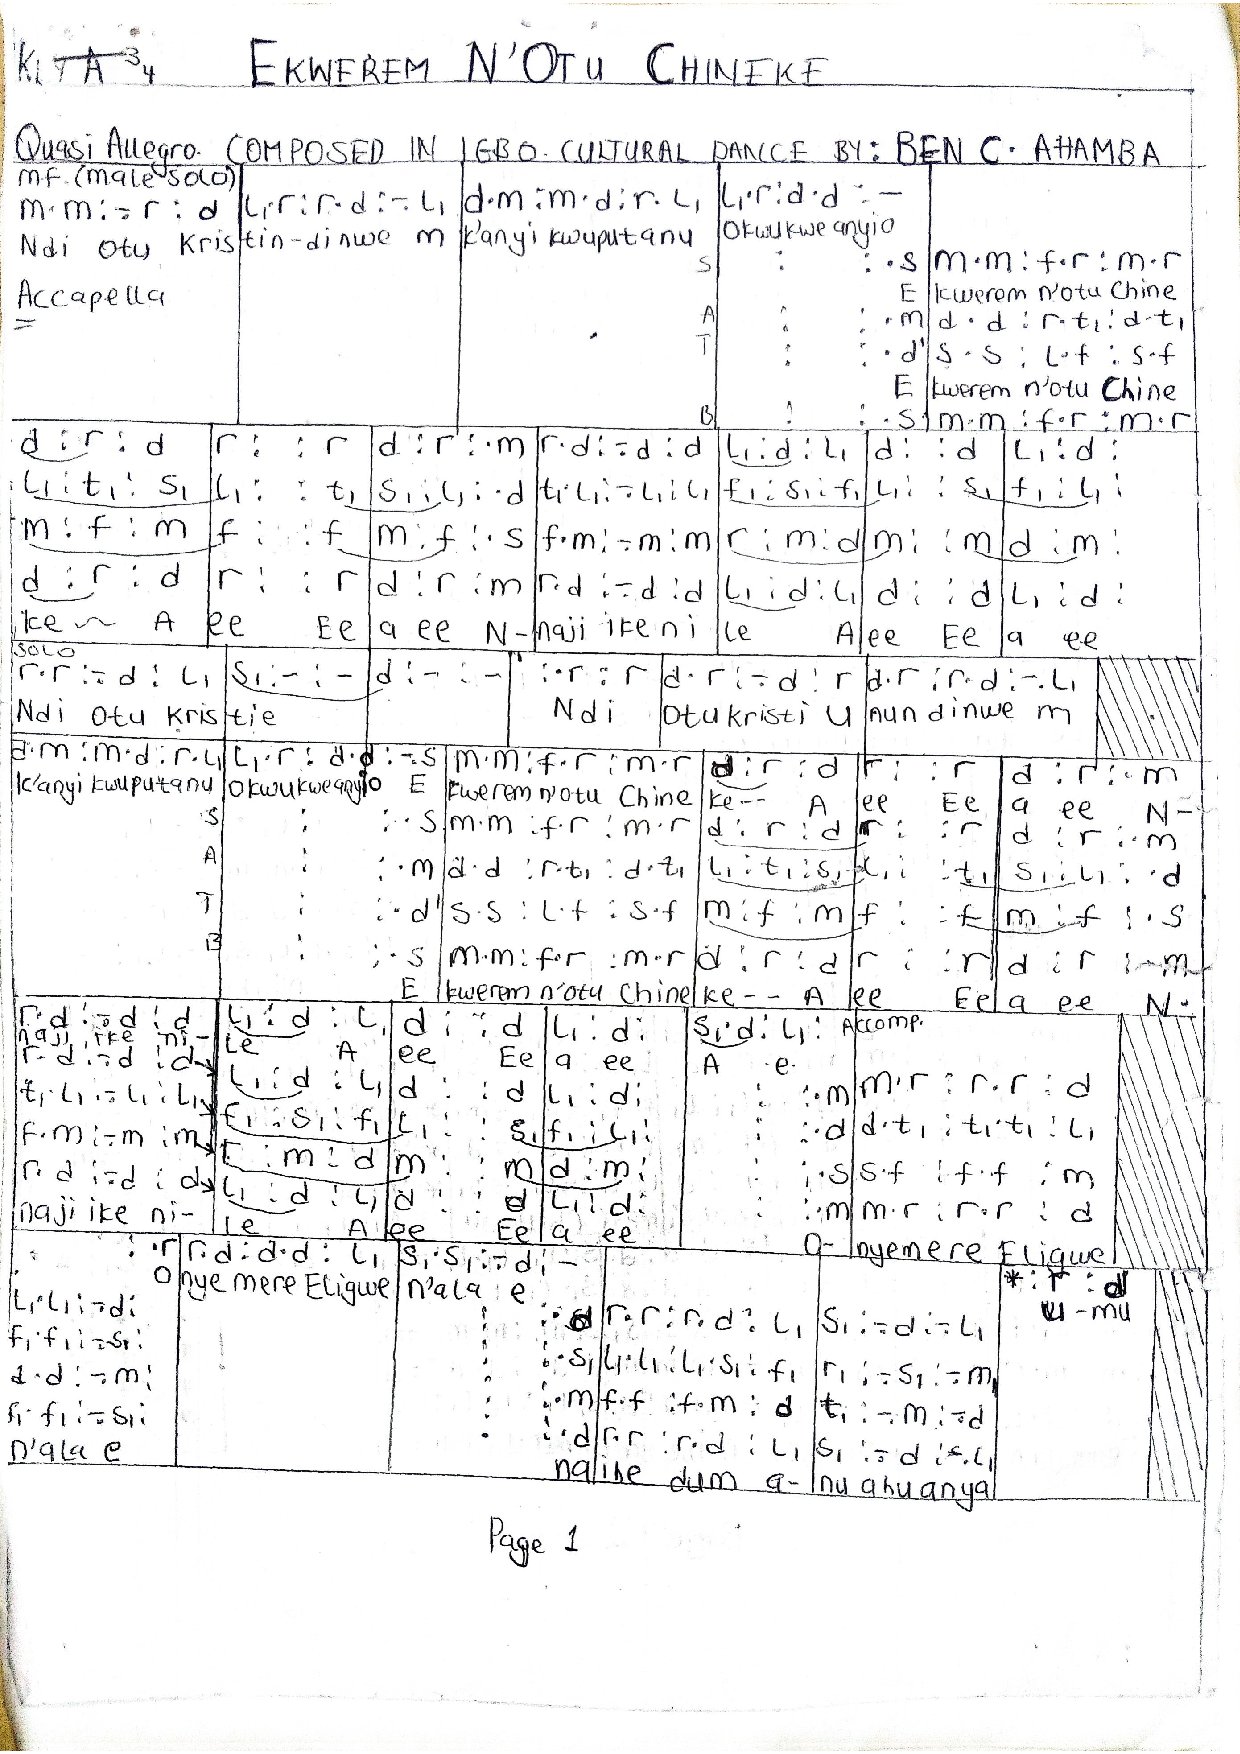 K L T A 3/4 EKWEREM N'OTU CHINEKE
Quasi Allegro. COMPOSED IN IGBO CULTURAL DANCE BY: BEN C. AHAMBA
mf (male solo)
m.m :-r : d | l₁.r : r.d :-.l₁ | d.m : m.d : r.l₁ | l₁.r : d.d : -
Ndi Otu Kris|tin-dinwe m | k'anyi kwuputanu | Okwukweanyio
S : : .s | m.m : f.r : m.r
Accapella E | kwerem n'otu Chine
A : : .m | d.d : r.t₁ : d.t₁
T : : .d' | s.s : l.f : s.f
E | kwerem n'otu Chine
B : : .s | m.m : f.r : m.r
d : r : d | r : : r | d : r : .m | r.d :-d : d | l₁ : d : l₁ | d : : d | l₁ : d :
l₁ : t₁ : s₁ | l₁ : : t₁ | s₁ : l₁ : .d | t₁.l₁ :-l₁ : l₁ | f₁ : s₁ : f₁ | l₁ : : s₁ | f₁ : l₁ :
m : f : m | f : : f | m : f : .s | f.m :-m : m | r : m : d | m : : m | d : m :
d : r : d | r : : r | d : r : m | r.d :-d : d | l₁ : d : l₁ | d : : d | l₁ : d :
ke ~ A | ee Ee | a ee N- | naji ike ni | le A | ee Ee | a ee
SOLO
r.r :-d : l₁ | s₁ :- :- | d :- :- | : r : r | d.r :-d : r | d.r : r.d :-.l₁
Ndi Otu Kris|tie Ndi | Otu kristi U | nun dinwe m
d.m : m.d : r.l₁ | l₁.r : d.d :-s | m.m : f.r : m.r | d : r : d | r : : r | d : r : .m
k'anyi kwuputanu | Okwukweanyio E | kwerem n'otu Chine | ke-- A | ee Ee | a ee N-
S : : .s | m.m : f.r : m.r | d : r : d | r : : r | d : r : .m
A : .m | d.d : r.t₁ : d.t₁ | l₁ : t₁ : s₁ | l₁ : : t₁ | s₁ : l₁ : .d
T : : .d' | s.s : l.f : s.f | m : f : m | f : : f | m : f : .s
B : : .s | m.m : f.r : m.r | d : r : d | r : : r | d : r : -m
E | kwerem n'otu Chine | ke-- A | ee Ee | a ee N-
r.d :-d : d | l₁ : d : l₁ | d : : d | l₁ : d : | s₁ : d : l₁ : Accomp.
naji ike ni- | le A | ee Ee | a ee | A e.
r.d :-d : d | l₁ : d : l₁ | d : : d | l₁ : d : | : : .m | m.r : r.r : d
t₁.l₁ :-l₁ : l₁ | f₁ : s₁ : f₁ | l₁ : : s₁ | f₁ : l₁ : | : : .d | d.t₁ : t₁.t₁ : l₁
f.m :-m : m | r : m : d | m : : m | d : m : | : .s | s.f : f.f : m
r.d :-d : d | l₁ : d : l₁ | d : : d | l₁ : d : | : .m | m.r : r.r : d
naji ike ni- | le A | ee Ee | a ee O- | nyemere Eligwe
: .r | r.d : d.d : l₁ | s₁.s₁ :-d : - * : r : d
O | nye mere Eligwe | n'ala e u -mu
l₁.l₁ :-d : : : .d | r.r : r.d : l₁ | s₁ :-d :-l₁
f₁.f₁ :-s₁ : : : .s₁ | l₁.l₁ : l₁.s₁ : f₁ | r₁ :-s₁ :-m₁
d.d :-m : : : .m | f.f : f.m : d | t₁ :-m :-d
f₁.f₁ :-s₁ : : .d | r.r : r.d : l₁ | s₁ :-d :-.l₁
n'ala e na|ihe dum a- | nu ahuanya
Page 1